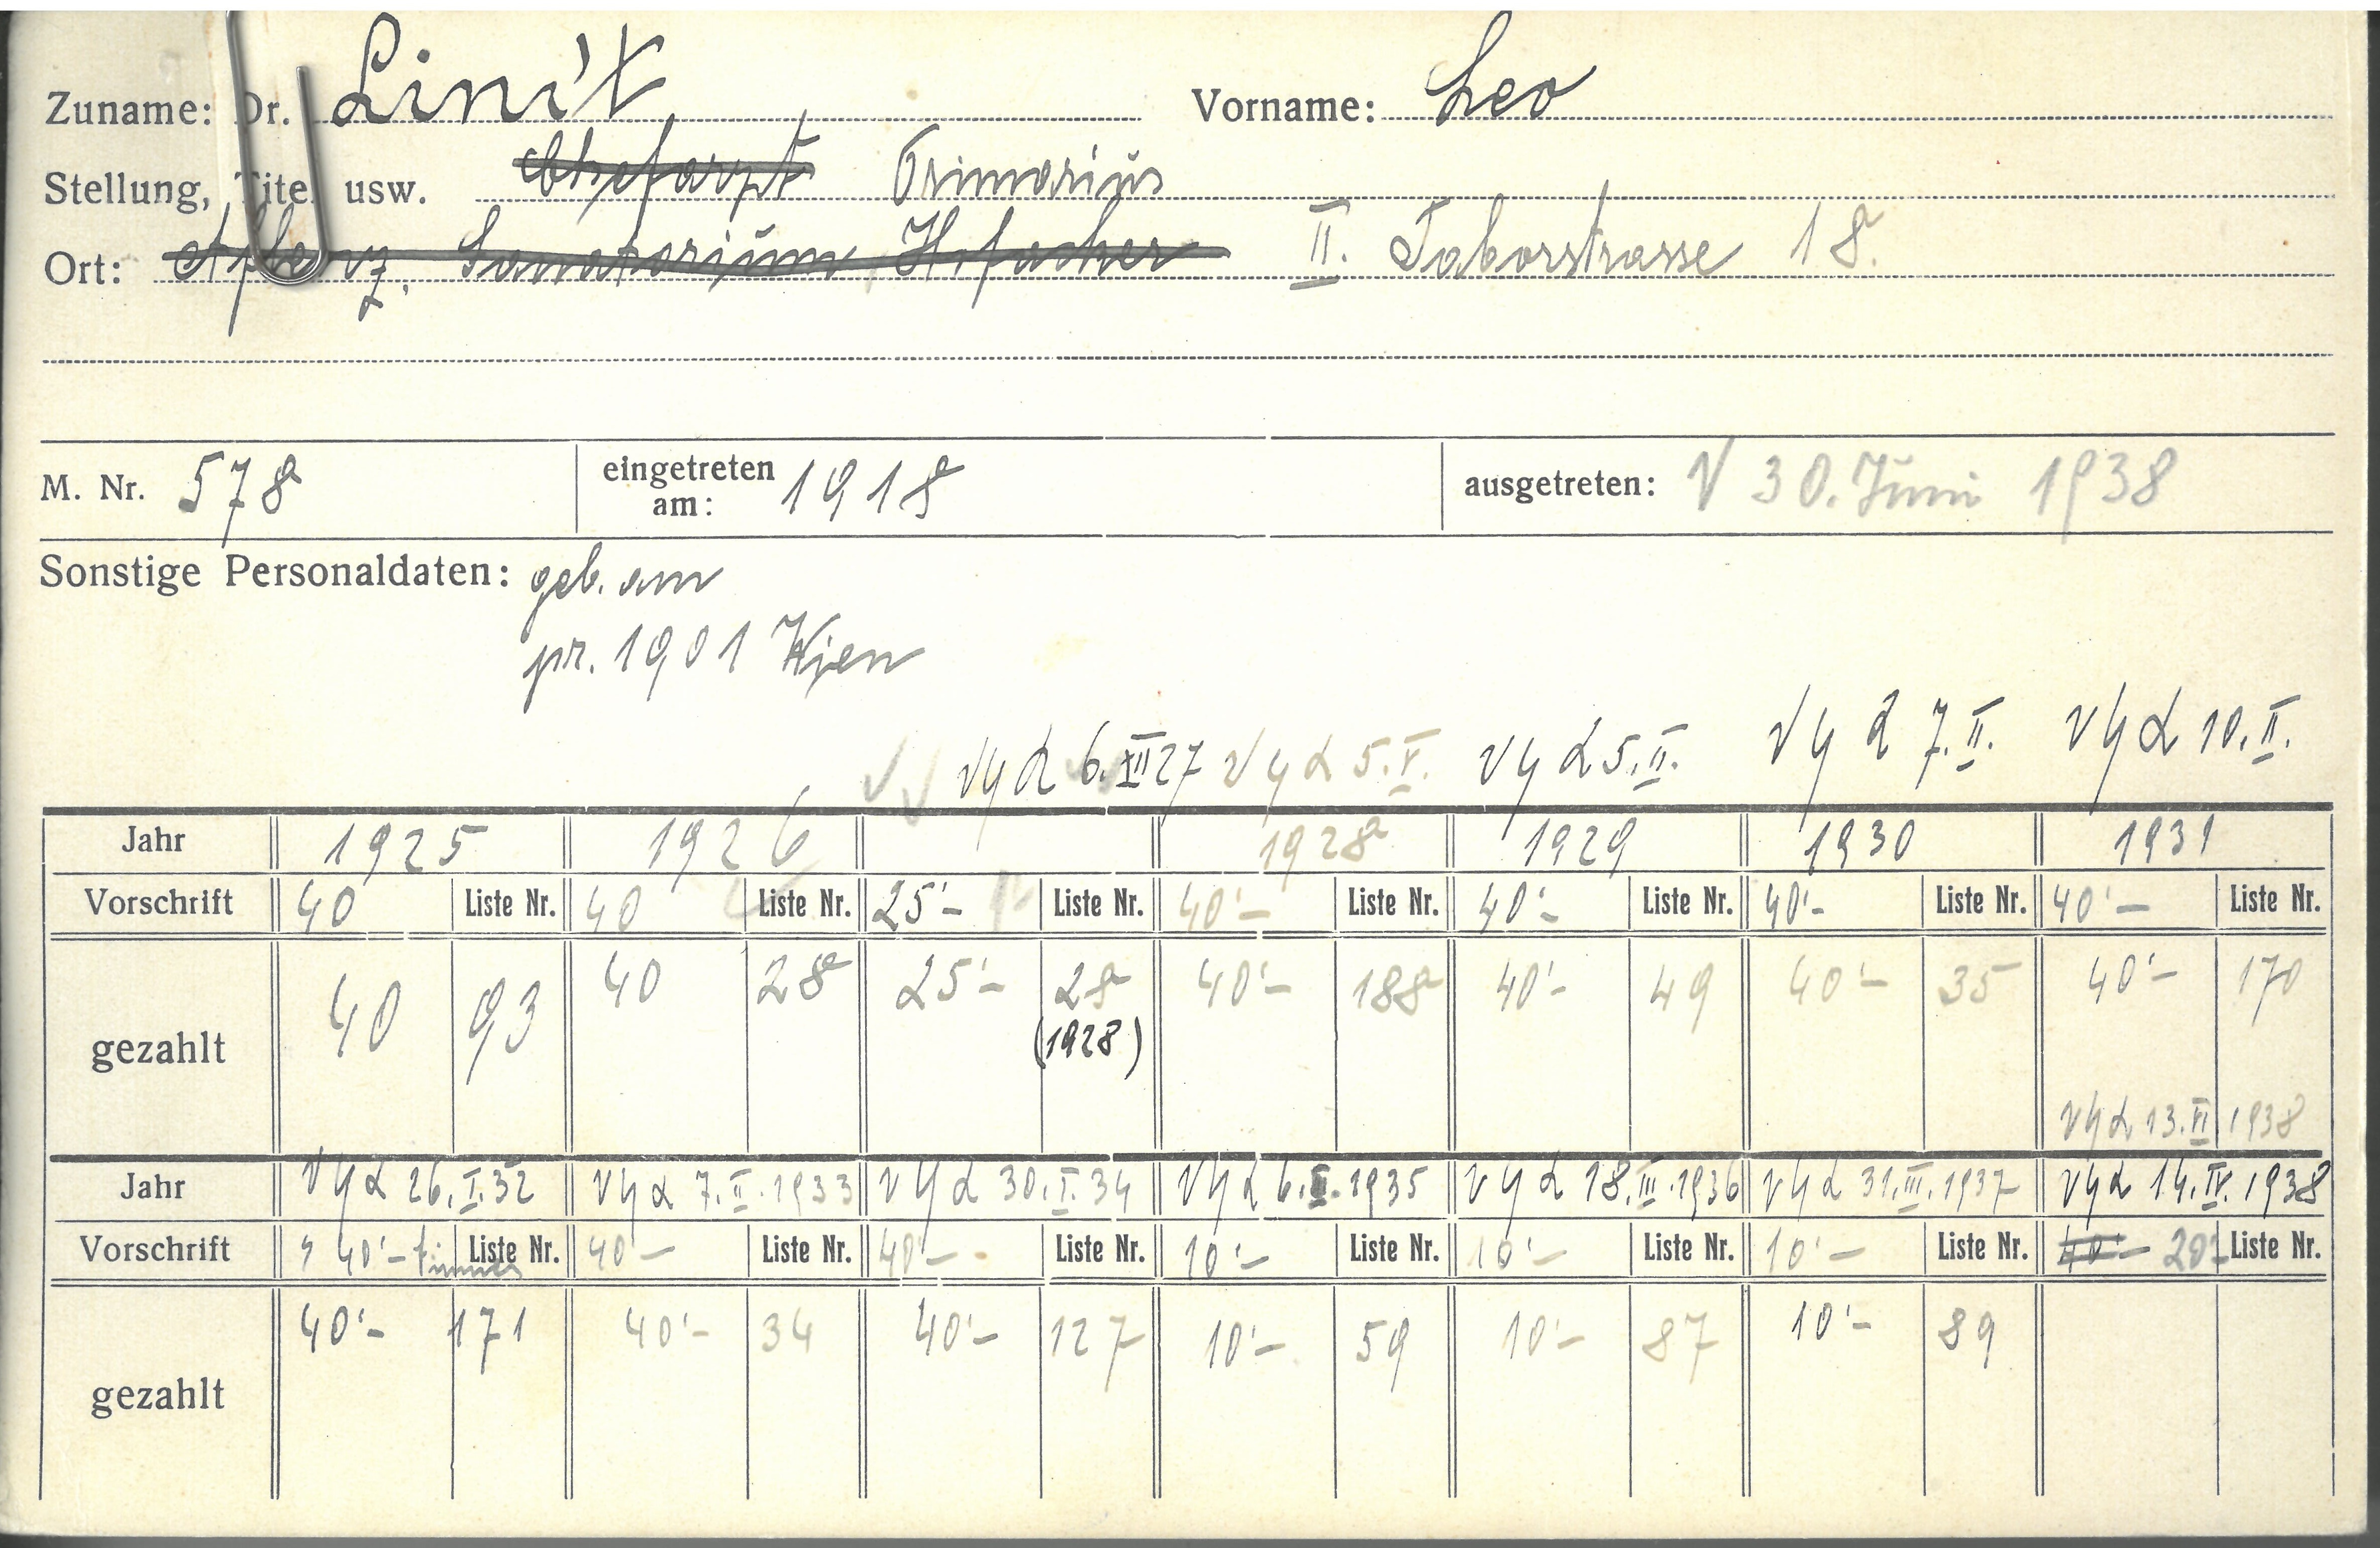 Zuname: Dr. Linit Vorname: Leo
Stellung, Titel usw. Chefarzt Primarius
Ort: Aflenz, Sanatorium Hofacker II. Taborstrasse 18.
M. Nr. 578 eingetreten am: 1918 ausgetreten: V 30. Juni 1938
Sonstige Personaldaten: geb. am
pr. 1901 Wien
6. XII 27 5. V. 5. II. 7. II. 10. II.
Jahr 1925 1926 1928 1929 1930 1931
Vorschrift 40 Liste Nr. 40 Liste Nr. 25'- Liste Nr. 40'- Liste Nr. 40'- Liste Nr. 40'- Liste Nr. 40'- Liste Nr.
gezahlt 40 93 40 28 25'- 28 40'- 188 40'- 49 40'- 35 40'- 170
(1928)
13. VI 1938
Jahr 26. I. 32 7. II. 1933 30. I. 34 6. II. 1935 18. III. 1936 31. III. 1937 14. IV. 1938
Vorschrift 40'- Liste Nr. 40'- Liste Nr. 40'- Liste Nr. 10'- Liste Nr. 10'- Liste Nr. 10'- Liste Nr. 40'- 20'- Liste Nr.
gezahlt 40'- 171 40'- 34 40'- 127 10'- 59 10'- 87 10'- 89